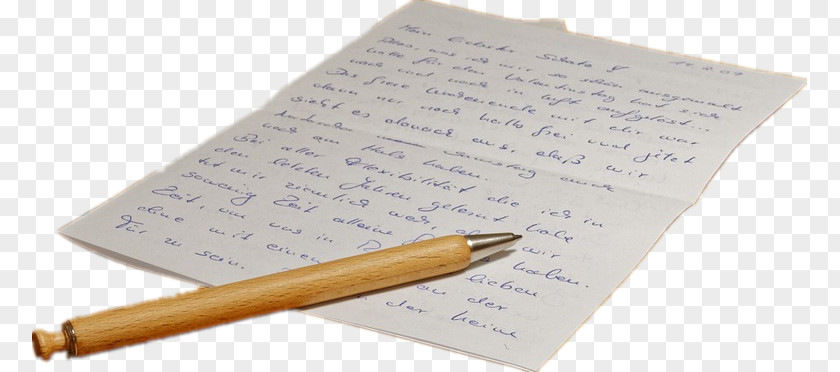 Mein liebster Schatz! 14.2.07
Dass, was ich mir so schön ausgemalt
habe für den Valentinstag hat sich
nach und nach in Luft aufgelöst...
Das freie Wochenende mit dir war
dann nur noch halb frei und jetzt
sieht es danach aus, daß wir
auch noch am Hals haben.
Bei aller Flexibilität die ich in
den letzten Jahren gelernt habe
tut mir ziemlich weh, wir
sowenig Zeit alleine haben.
Zeit, um uns in lieben
ohne mit einem an der
Tür zu sein. der keine